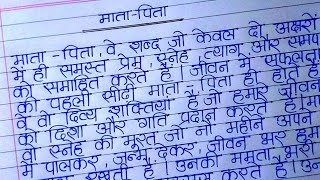 माता-पिता
माता-पिता, वे शब्द जो केवल दो अक्षरों
में ही समस्त प्रेम, स्नेह, त्याग और समर्पण
को समाहित करते हैं। जीवन में सफलता
की पहली सीढ़ी माता-पिता ही होते हैं
वे वो दिव्य शक्तियां हैं जो हमारे जीवन
को दिशा और गति प्रदान करते हैं। मां
वो स्नेह की मूरत जो नौ महीने अपने
में पालकर, जन्म देकर, जीवन भर हमा
रखती है। उनकी ममता भरी